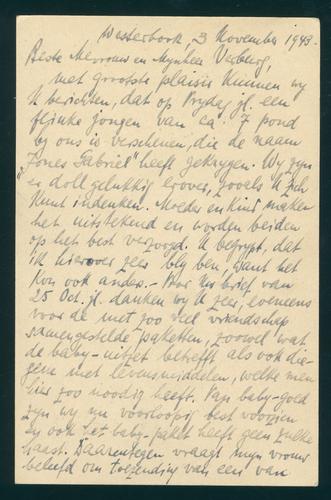 Westerbork, 3 November 1943.
Beste Mevrouw en Mynheer Verburg,
met grootste plaisir kunnen wy
U berichten, dat op Vrydag jl. een
flinke jongen van ca. 7 pond
by ons is verschenen, die de naam
"Jones Gabriel" heeft gekregen. Wy zyn
er dolgelukkig erover, zooals U zich
kunt indenken. Moeder en kind maken
het uitstekend en worden beiden
op het best verzorgd. U begrypt, dat
ik hierover zeer bly ben, want het
kon ook anders. - Voor Uw brief van
25 Oct. jl. danken wy U zeer, eveneens
voor de met zoo veel vriendschap
samengestelde paketten, zoowel wat
de baby-uitzet betreft als ook die-
gene met levensmiddelen, welke men
hier zoo noodig heeft. Van baby-goed
zyn wy nu voorloopig best voorzien
en ook het baby-paket heeft geen zulke
haast. Daarentegen vraagt myn vrouw
beleefd om toezending van een van